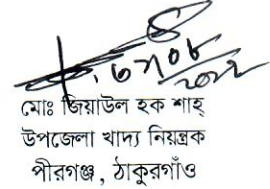 মোঃ জিয়াউল হক শাহ্
উপজেলা খাদ্য নিয়ন্ত্রক
পীরগঞ্জ, ঠাকুরগাঁও